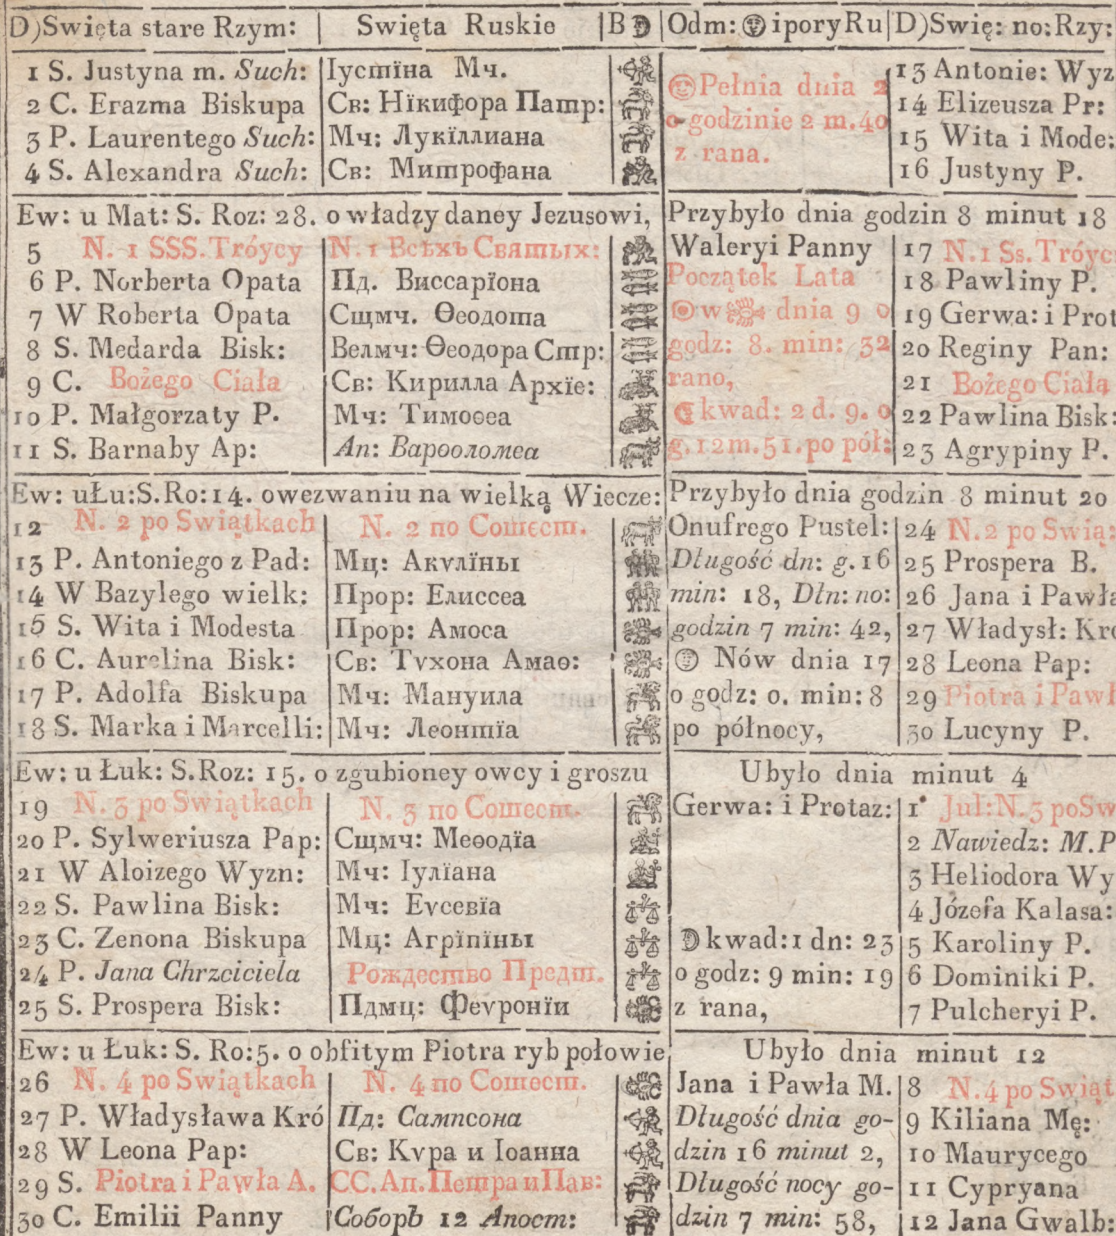 D)Swięta stare Rzym: | Swięta Ruskie | B | Odm: i pory Ru | D)Swię: no: Rzy:
1 S. Justyna m. Such: | Іустїна Мч. | Pełnia dnia 2 | 13 Antonie: Wyz
2 C. Erazma Biskupa | Св: Нїкифора Патр: | o godzinie 2 m. 40 | 14 Elizeusza Pr:
3 P. Laurentego Such: | Мч: Лукїллиана | z rana. | 15 Wita i Mode:
4 S. Alexandra Such: | Св: Митрофана | 16 Justyny P.
Ew: u Mat: S. Roz: 28. o władzy daney Jezusowi, | Przybyło dnia godzin 8 minut 18
5 N. 1 SSS. Tróycy | N. 1 Всѣхъ Святыхъ: | Waleryi Panny | 17 N. 1 Ss. Tróyc
6 P. Norberta Opata | Пд. Виссарїона | Początek Lata | 18 Pawliny P.
7 W Roberta Opata | Сщмч. Ѳеодота | w dnia 9 o | 19 Gerwa: i Prot
8 S. Medarda Bisk: | Велмч: Ѳеодора Стр: | godz: 8. min: 32 | 20 Reginy Pan:
9 C. Bożego Ciała | Св: Кирилла Архїе: | rano, | 21 Bożego Ciała
10 P. Małgorzaty P. | Мч: Тимоѳеа | kwad: 2 d. 9. o | 22 Pawlina Bisk:
11 S. Barnaby Ap: | Ап: Варѳоломеа | g. 12 m. 51. po pół: | 23 Agrypiny P.
Ew: u Łu: S. Ro: 14. o wezwaniu na wielką Wiecze: | Przybyło dnia godzin 8 minut 20
12 N. 2 po Swiątkach | N. 2 по Сошест. | Onufrego Pustel: | 24 N. 2 po Swią:
13 P. Antoniego z Pad: | Мц: Акѵлїны | Długość dn: g. 16 | 25 Prospera B.
14 W Bazylego wielk: | Прор: Елиссеа | min: 18, Dłn: no: | 26 Jana i Pawła
15 S. Wita i Modesta | Прор: Амоса | godzin 7 min: 42, | 27 Władysł: Kró
16 C. Aurelina Bisk: | Св: Тѵхона Амаѳ: | Nów dnia 17 | 28 Leona Pap:
17 P. Adolfa Biskupa | Мч: Мануила | o godz: 0. min: 8 | 29 Piotra i Pawł
18 S. Marka i Marcelli: | Мч: Леонтїа | po północy, | 30 Lucyny P.
Ew: u Łuk: S. Roz: 15. o zgubioney owcy i groszu | Ubyło dnia minut 4
19 N. 3 po Swiątkach | N. 3 по Сошест. | Gerwa: i Protaz: | 1 Jul: N. 3 po Sw
20 P. Sylweriusza Pap: | Сщмч: Меѳодїа | 2 Nawiedz: M. P
21 W Aloizego Wyzn: | Мч: Іулїана | 3 Heliodora Wy
22 S. Pawlina Bisk: | Мч: Еѵсевїа | 4 Józefa Kalasa:
23 C. Zenona Biskupa | Мц: Агрїпїны | kwad: 1 dn: 23 | 5 Karoliny P.
24 P. Jana Chrzciciela | Рождество Предт. | o godz: 9 min: 19 | 6 Dominiki P.
25 S. Prospera Bisk: | Пдмц: Феѵронїи | z rana, | 7 Pulcheryi P.
Ew: u Łuk: S. Ro: 5. o obfitym Piotra ryb połowie | Ubyło dnia minut 12
26 N. 4 po Swiątkach | N. 4 по Сошест. | Jana i Pawła M. | 8 N. 4 po Swiąt
27 P. Władysława Kró | Пд: Сампсона | Długość dnia go- | 9 Kiliana Mę:
28 W Leona Pap: | Св: Кѵра и Іоанна | dzin 16 minut 2, | 10 Maurycego
29 S. Piotra i Pawła A. | СС. Ап. Петра и Пав: | Długość nocy go- | 11 Cypryana
30 C. Emilii Panny | Соборъ 12 Апост: | dzin 7 min: 58, | 12 Jana Gwalb: